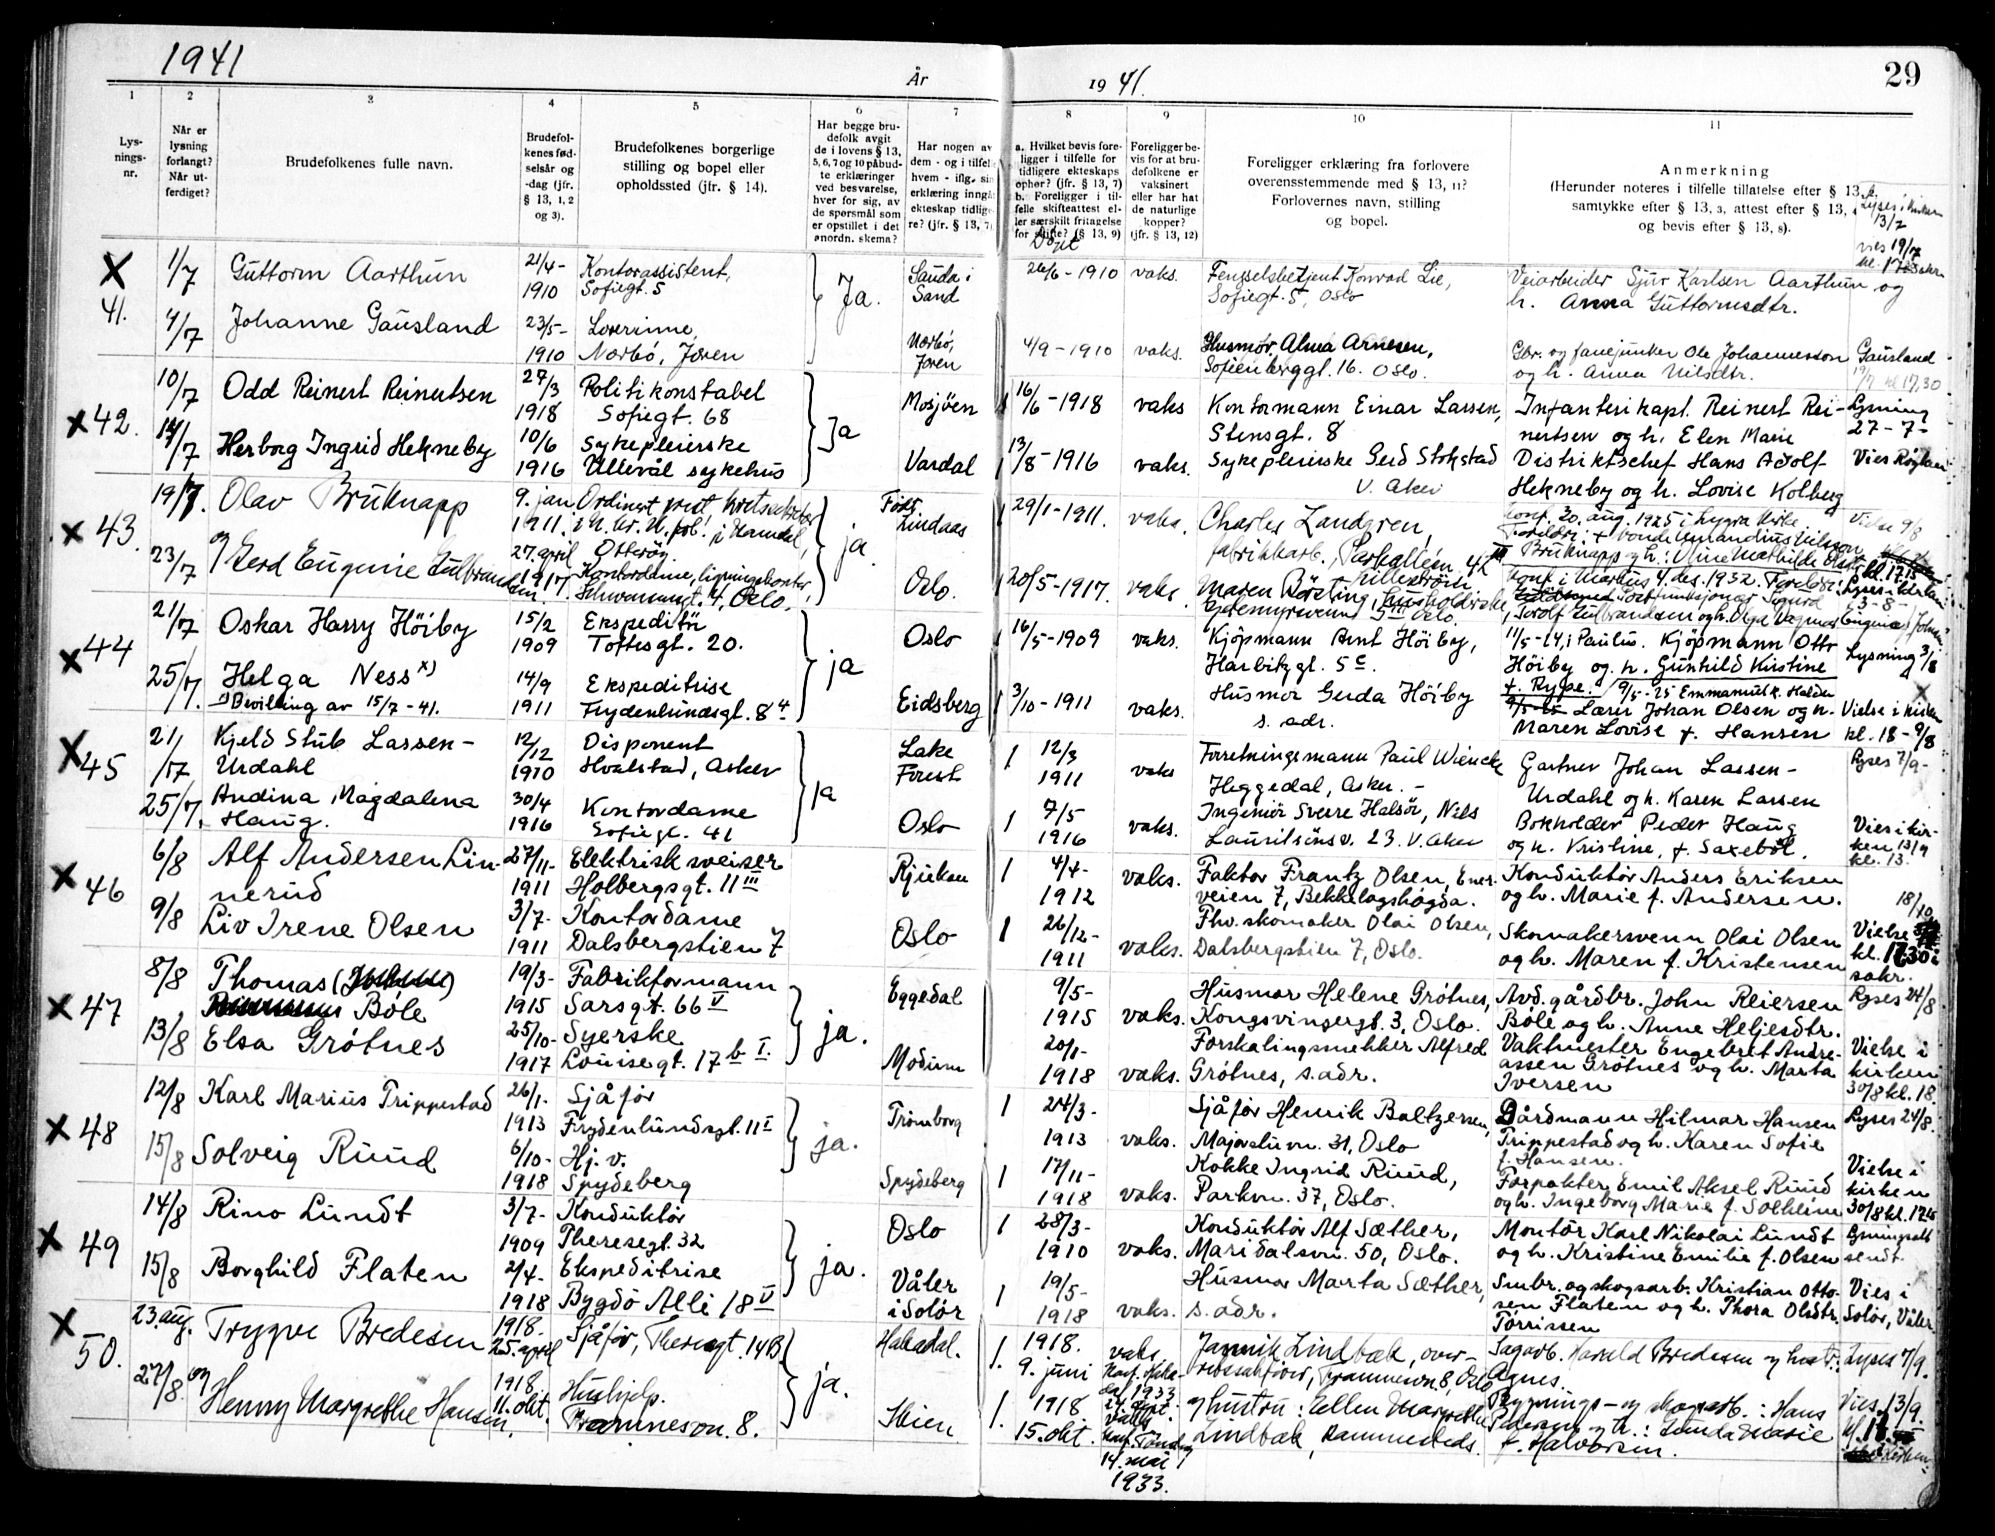 1941
År
19 41.
29
1
2
3
4
5
6
7
8
9
10
11
Lys-
nings-
nr.
Når er
lysning
forlangt?
Når ut-
ferdiget?
Brudefolkenes fulle navn.
Brudefol-
kenes fød-
selsår og
-dag (jfr.
§ 13, 1, 2
og 3).
Brudefolkenes borgerlige
stilling og bopel eller
opholdssted (jfr. § 14).
Har begge bru-
defolk avgit
de i lovens § 13,
5, 6, 7 og 10 påbud-
te erklæringer
ved besvarelse,
hver for sig, av
de spørsmål som
er opstillet i det
anordn. skema?
Har nogen av
dem - og i tilfel
hvem - iflg. sin
erklæring inngå
ekteskap tidlig
re? (jfr. § 13, 7)
a. Hvilket bevis fore-
ligger i tilfelle for
tidligere ekteskaps
ophør? (jfr. § 13, 7)
b. Foreligger i til-
felle skifteattest el-
ler særskilt fritagelse
for skifte? (§ 13, 9)
Døpt
Foreligger be-
vis for at bru-
defolkene er
vaksinert
eller har hat
de naturlige
kopper?
(jfr. § 13, 12)
Foreligger erklæring fra forlovere
overensstemmende med § 13, 11?
Forlovernes navn, stilling
og bopel.
Anmerkning
(Herunder noteres i tilfelle tillatelse efter § 13,
samtykke efter § 13, 3, attest efter § 13,
og bevis efter § 13, 8).
Lyses i kirken
13/7
vies 19/7
kl. 17
X 41.
1/7
4/7
Guttorm Aarthun
21/4-
1910
Kontorassistent,
Sofiegt. 5
Ja.
Sauda i
Sand
26/6 - 1910
vaks.
Fengselsbetjent Konrad Lie,
Sofiegt. 5, Oslo
Veiarbeider Sjur Karlsen Aarthun og
h. Anna Guttormsdtr.
Johanne Gausland
23/5-
1910
Lærerinne,
Nærbö, Jæren
Nærbö,
Jæren
4/9 - 1910
vaks.
Husmor Alma Arnesen,
Sofienberggt. 16. Oslo.
Gbr. og fanejunker Ole Johannesson Gausland
og h. Anna Nilsdtr.
19/7 kl 17,30
X 42.
10/7
14/7
Odd Reinert Reinertsen
27/3
1918
Politikonstabel
Sofiegt. 68
Ja
Mosjöen
1
16/6 - 1918
vaks
Kontormann Einar Larsen,
Stensgt. 8
Infanterikapt. Reinert Rei-
nertsen og h. Elen Marie
Lysning
27-7-
Herborg Ingrid Hekneby
10/6
1916
Sykepleierske
Ullevål sykehus
Vardal
1
13/8 - 1916
vaks.
Sykepleierske Gerd Stokstad
V. Aker
Distriktschef Hans Adolf
Hekneby og h. Lovise Kolberg
X 43.
19/7.
23/7
Olav Bruknapp
9. jan
1911.
Ordinert prest
ja.
Född:
Lindaas
1
29/1-1911.
vaks.
Charles Landgren,
fabrikkarb.
Konf. 30. aug. 1925 i Lygra kirke.
Vielse 9/8
kl. 17.15
og Gerd Eugenie Gulbrandsen
27. april
1917.
Kontordame, ligningskontor,
4, Oslo.
Oslo.
1
20/5-1917.
vaks.
Maren Börsting
Oslo.
Konf. i Markus 4. des. 1932. Foreldre:
3-8-
X 44
21/7
25/7.
Oskar Harry Höiby
15/2
1909
Ekspeditör
Toftesgt. 20.
ja
Oslo
1
16/5-1909
vaks.
Kjöpmann Arnt Höiby,
Harbitzgt. 5c.
11/5-24, i Paulus. Kjöpmann Otto
Höiby og h. Gunhild Kristine
f. Rype.
Lysning 3/8
Helga Ness x)
x) Bevilling av 15/7-41.
14/9
1911
Ekspeditrise
Frydenlundsgt. 8 4
Eidsberg
1
3/10 - 1911
vaks.
Husmor Gerda Höiby
s. adr.
9/5-25 Emmanuelk. Halden
Lærer Johan Olsen og h.
Maren Lovise f. Hansen
Vielse i kirken
kl. 18 - 9/8
X 45
21/7
25/7.
Kjeld Stub Lassen-
Urdahl
12/12
1910
Disponent
Hvalstad, Asker
ja
Lake
Forest
1
12/3
1911
vaks
Forretningsmann Paul Wiencke
Heggedal, Asker.-
Gartner Johan Lassen-
Urdahl og h. Karen Larsen
Lyses 7/9-
Andina Magdalena
Haug.
30/4
1916
Kontordame
Sofiegt. 41
Oslo
1
7/5
1916
vaks.
Ingeniör Sverre Halsör, Nils
Lauritsönsv. 23. V. Aker
Bokholder Peder Haug
og h. Kristine, f. Saxeböl.
Vies i kir-
ken 13/9
kl. 13.
X 46
6/8
9/8
Alf Andersen Lin-
nerud
27/11-
1911
Elektrisk sveiser
Holbergsgt. 11 III
Rjukan
1
4/4-
1912
vaks.
Faktor Frantz Olsen, Ener-
veien 7, Bekkelagshögda.
Konduktör Anders Eriksen
og h. Marie f. Andersen.
Liv Irene Olsen
3/7-
1911
Kontordame
Dalsbergstien 7
Oslo
1
26/12-
1911
vaks.
Fhv. skomaker Olai Olsen,
Dalsbergstien 7, Oslo.
Skomakersvenn Olai Olsen
og h. Maren f. Kristensen
18/10
Vielse
kl. 17.30 i
sakr.
X 47
8/8
13/8
Thomas
Böle
19/3-
1915
Fabrikformann
Sarsgt. 66 V
ja.
Eggedal
9/5-
1915
vaks.
Husmor Helene Grötnes,
Kongsvingergt. 3, Oslo.
Avd. gårdbr. John Reiersen
Böle og h. Anne Heljesdtr.
Lyses 24/8.
Elsa Grötnes
25/10-
1917
Syerske
Louisegt. 17 b I.
Modum
20/1-
1918
vaks.
Forskalingssnekker Alfred
Grötnes, s. adr.
Vaktmester Engebret Andre-
assen Grötnes og h. Marta
Iversen
Vielse i
kirken
30/8 kl. 18.
X 48
12/8
15/8
Karl Marius Trippestad
26/1.
1913
Sjåför
Frydenlundsgt. 11 I
ja.
Trömborg
1
24/3-
1913
vaks.
Sjåför Henrik Baltzersen,
Majorstuvn. 31, Oslo
Gårdmann Hilmar Hansen
Trippestad og h. Karen Sofie
f. Hansen.
Lyses 24/8.
Solveig Ruud
6/10-
1918
Hj. v.
Spydeberg
Spydeberg
1
17/11-
1918
vaks.
Kokke Ingrid Ruud,
Parkvn. 37, Oslo.
Forpakter Emil Aksel Ruud
og h. Ingeborg Marie f. Solheim
Vielse i
kirken
30/8 kl.
X 49
14/8
15/8
Rino Lundt
3/7-
1909
Konduktör
Theresegt. 32
ja.
Oslo
1
28/3-
1910
vaks.
Konduktör Alf Sæther,
Maridalsvn. 50, Oslo.
Montör Karl Nikolai Lundt
og h. Kristine Emilie f. Olsen
Lysningsatt
sendt.
Borghild Flaten
2/4-
1918
Ekspeditrise
Bygdö Allé 18 V
Våler
i Solör
1
19/5-
1918
vaks.
Husmor Marta Sæther,
s. adr.
Smbr. og skogsarb. Kristian Otto-
sen Flaten og h. Thora Olsdtr.
Törrissen
Vies i
Solör, Våler.
X 50.
23. aug.
27/8.
Trygve Bredesen
1918.
25. april
Sjåför, Theresgt. 14B.
ja.
Hakadal.
1.
1918.
9. juni
vaks.
Konf. Haka-
dal 1933
Jannik Lindbæk, over-
rettssakförer, Framnesvn. 8, Oslo
Sagarb. Harald Bredesen og hustr.:
Agnes.
Lyses 7/9.
og Henny Margrethe Hansen.
1918
11. okt.
Hushjelp.
Framnesvn. 8.
Skien
1.
1918
15. okt.
vaks.
14. mai
1933.
og hustru: Ellen Margrethe
Lindbæk, sammesteds.
Bygnings- og skogsarb.: Hans
Pedersen og h.: Marie
f. Halvorsen.
Vies 13/9.
kl. 17